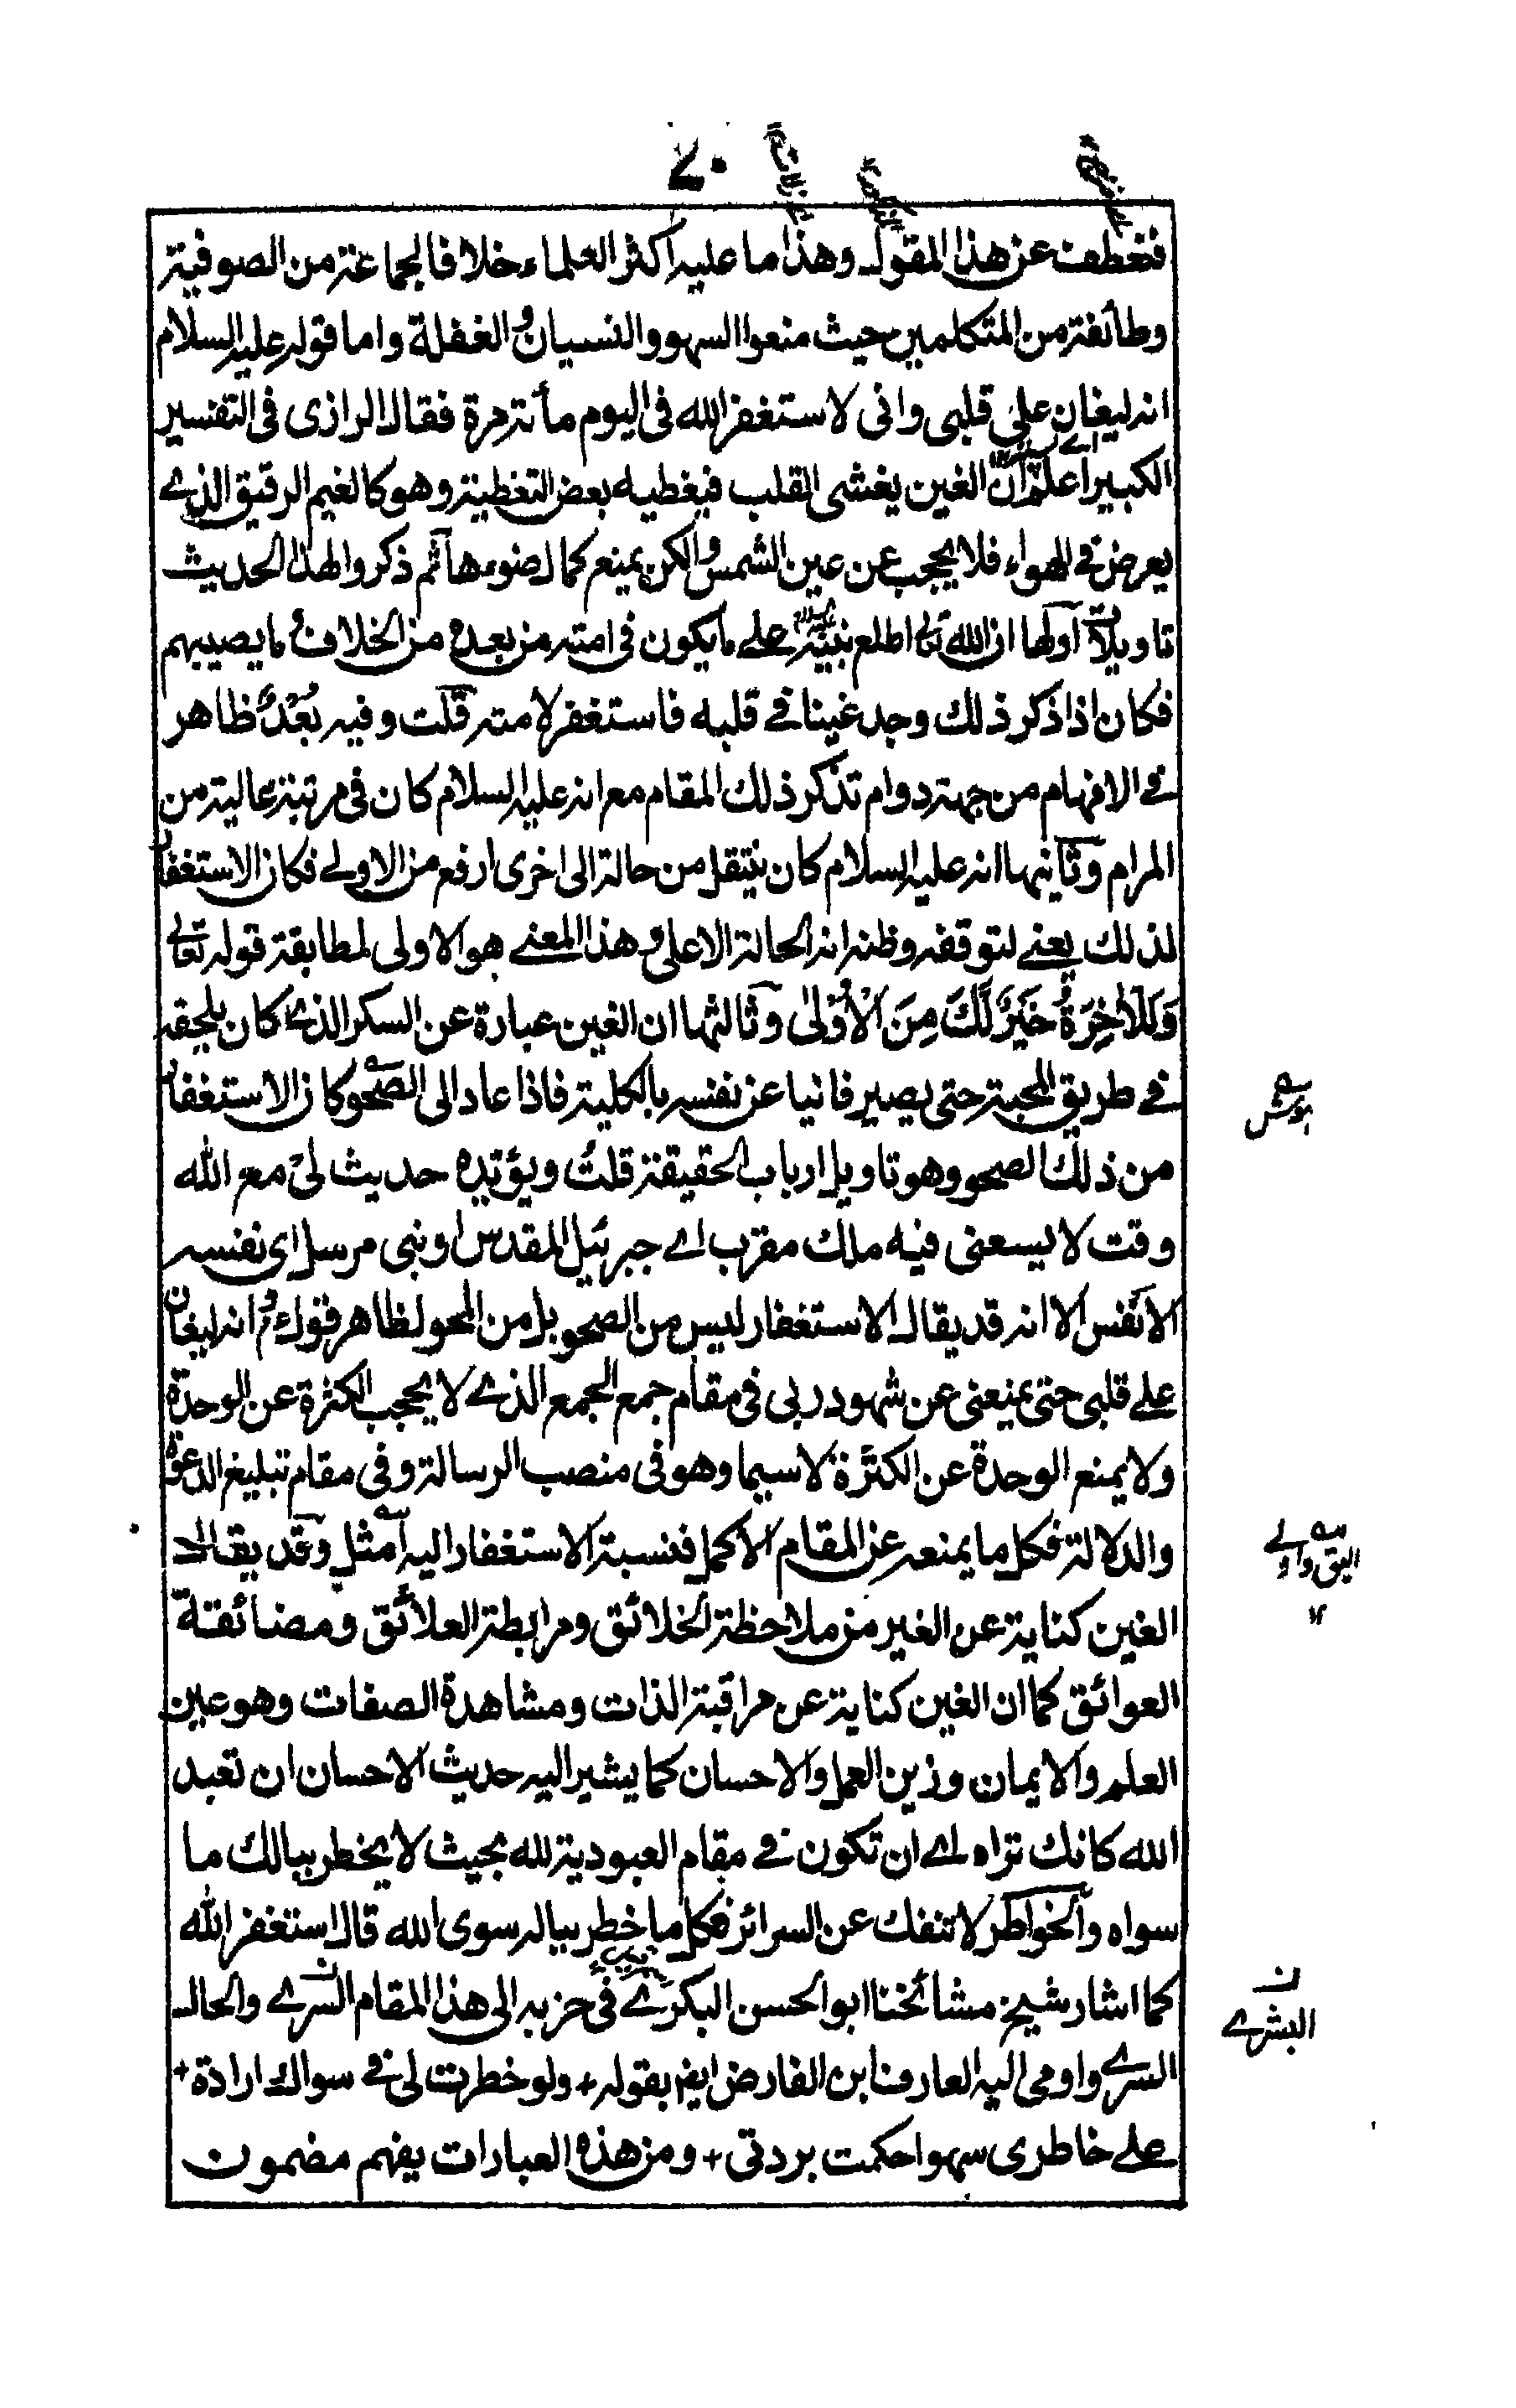 ٧٠
فغطف عن هذا المقول وهذا ما عليه اكثر العلماء خلافا لجماعة من الصوفية
وطائفة من المتكلمين حيث منعوا السهو والنسيان والغفلة واما قوله عليه السلام
انه ليغان على قلبى وانى لاستغفر الله فى اليوم مأئة مرة فقال الرازى فى التفسير
الكبير اعلم ان الغين يغشى القلب فيغطيه بعض التغطية وهو كالغيم الرقيق الذے
يعرض فے الهواء فلا يحجب عن عين الشمس ولكن يمنع كمال ضوءها ثم ذكروا لهذا الحديث
تاويلاً اولها ان الله تعالى اطلع نبيه على ما يكون فى امته من بعده من الخلاف وما يصيبهم
فكان اذا ذكر ذلك وجد غينا فے قلبه فاستغفر لامته قلت وفيه بُعْدٌ ظاهر
فے الافهام من جهة دوام تذكر ذلك المقام مع انه عليه السلام كان فى مرتبة عالية من
المرام وثانيها انه عليه السلام كان ينتقل من حالة الى اخرى ارفع من الاولے فكان الاستغفار
لذلك يعنے لتوقفه وظنه انه الحالة الاعلى وهذا المعنے هو الاولى لمطابقة قوله تعالى
وَلَلْاٰخِرَةُ خَيْرٌ لَّكَ مِنَ الْاُوْلٰى وثالثها ان الغين عبارة عن السكر الذے كان يلحقه
فے طريق المحبة حتى يصير فانيا عن نفسه بالكلية فاذا عاد الى الصحو كان الاستغفار
من ذلك الصحو وهو تاويل ارباب الحقيقة قلتُ ويؤيده حديث لى مع الله
وقت لا يسعنى فيه ملك مقرب اے جبرئيل المقدس او نبى مرسل اى نفسه
الانفس الا انه قد يقال الاستغفار ليس من الصحو بل من المحو لظاهر قوله انه ليغان
علے قلبى حتى يمنعنى عن شهود ربى فى مقام جمع الجمع الذے لا يحجب الكثرة عن الوحدة
ولا يمنع الوحدة عن الكثرة لا سيما وهو فى منصب الرسالة وفى مقام تبليغ الدعوة
والدلالة فكل ما يمنعه عن المقام الاكمل فنسبة الاستغفار اليه امثل وقد يقال
الغين كناية عن الغير من ملاحظة الخلائق ومرابطة العلائق ومضائقة
العوائق كما ان الغين كناية عن مراقبة الذات ومشاهدة الصفات وهو عين
العلم والايمان وزين العمل والاحسان كما يشير اليه حديث الاحسان ان تعبد
الله كانك تراه اے ان تكون فے مقام العبودية لله بحيث لا يخطر ببالك ما
سواه والخواطر لا تنفك عن السرائر فكل ما خطر بباله سوى الله قال استغفر الله
كما اشار شيخ مشائخنا ابو الحسن البكرے فى حزبه الى هذا المقام السرے والحال
السرے واومى اليه العارف ابن الفارض ايضا بقوله + ولو خطرت لى فے سواك ارادة +
علے خاطرى سهوا حكمت بردتى + ومن هذه العبارات يفهم مضمون
اليق واولے ١٢
ن
البشرے